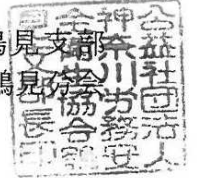 鶴見支部
鶴見労会
公益社団法人
神奈川労務安
全衛生協会鶴
見支部長印